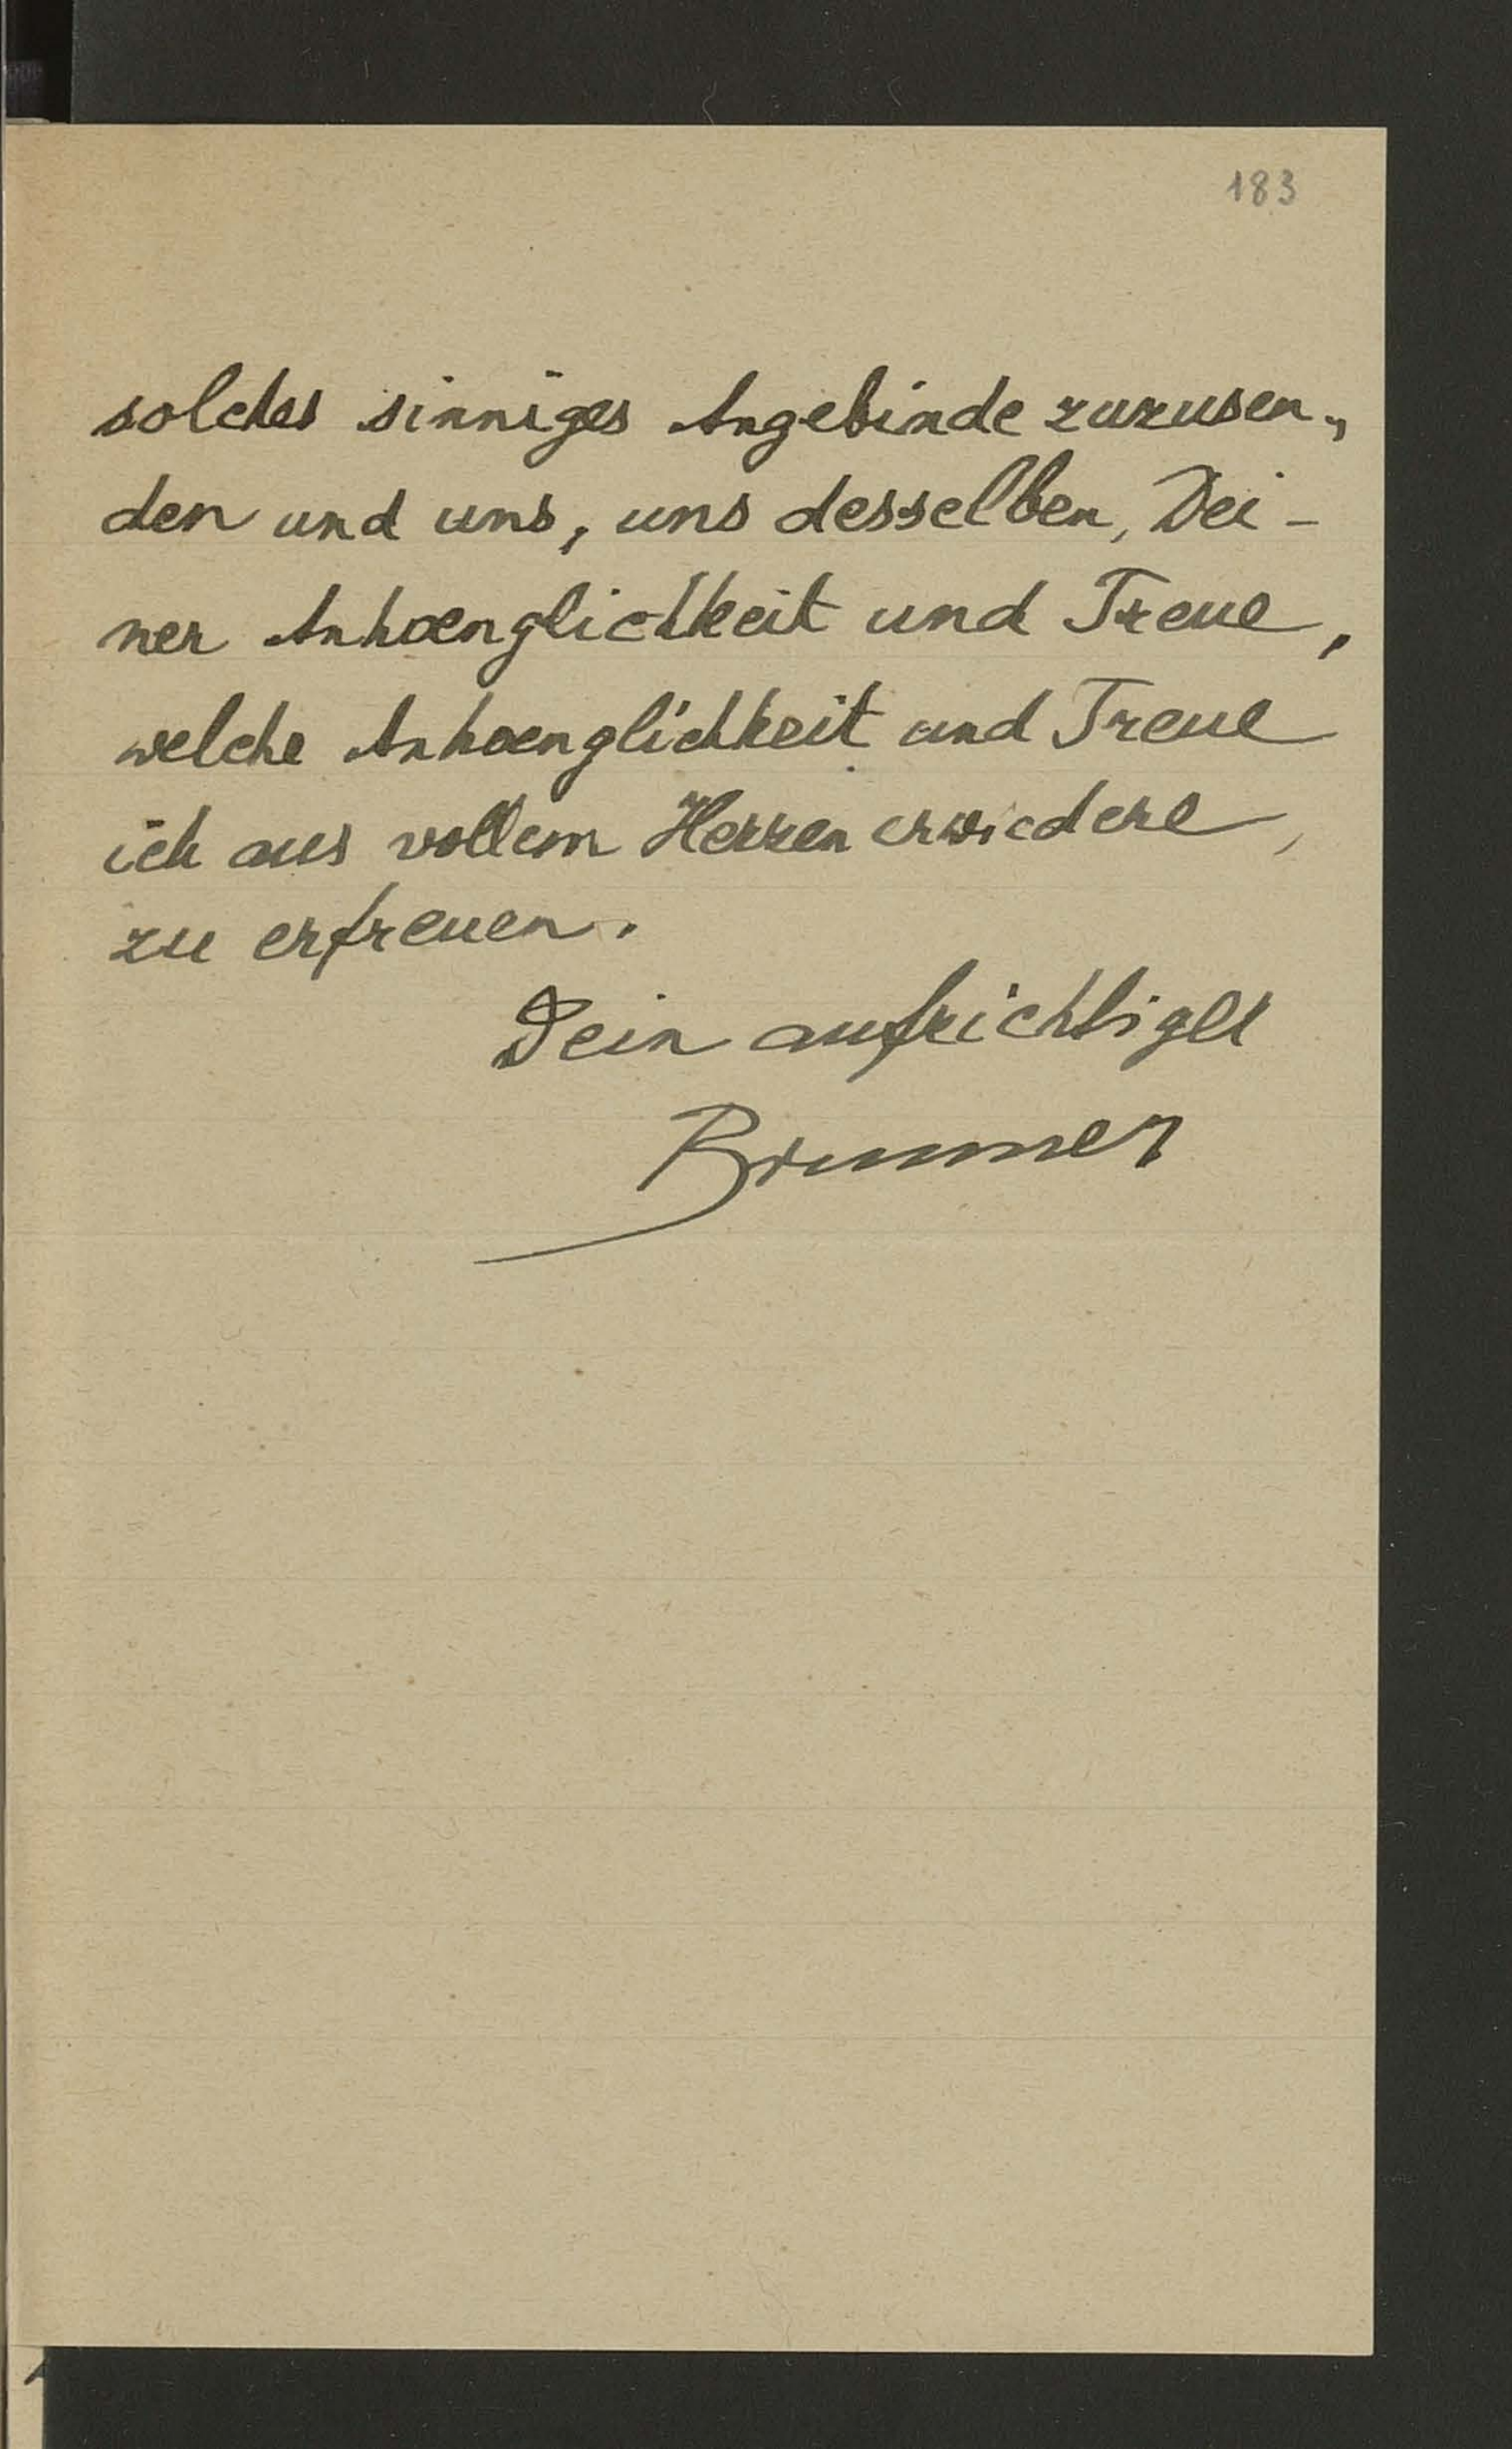 183
solches sinniges Angebinde zuzusen„
den und uns, uns desselben, Dei-
ner Anhaenglichkeit und Treue,
welche Anhaenglichkeit und Treue
ich aus vollem Herzen erwiedere,
zu erfreuen.
Dein aufrichtiger
Brunner